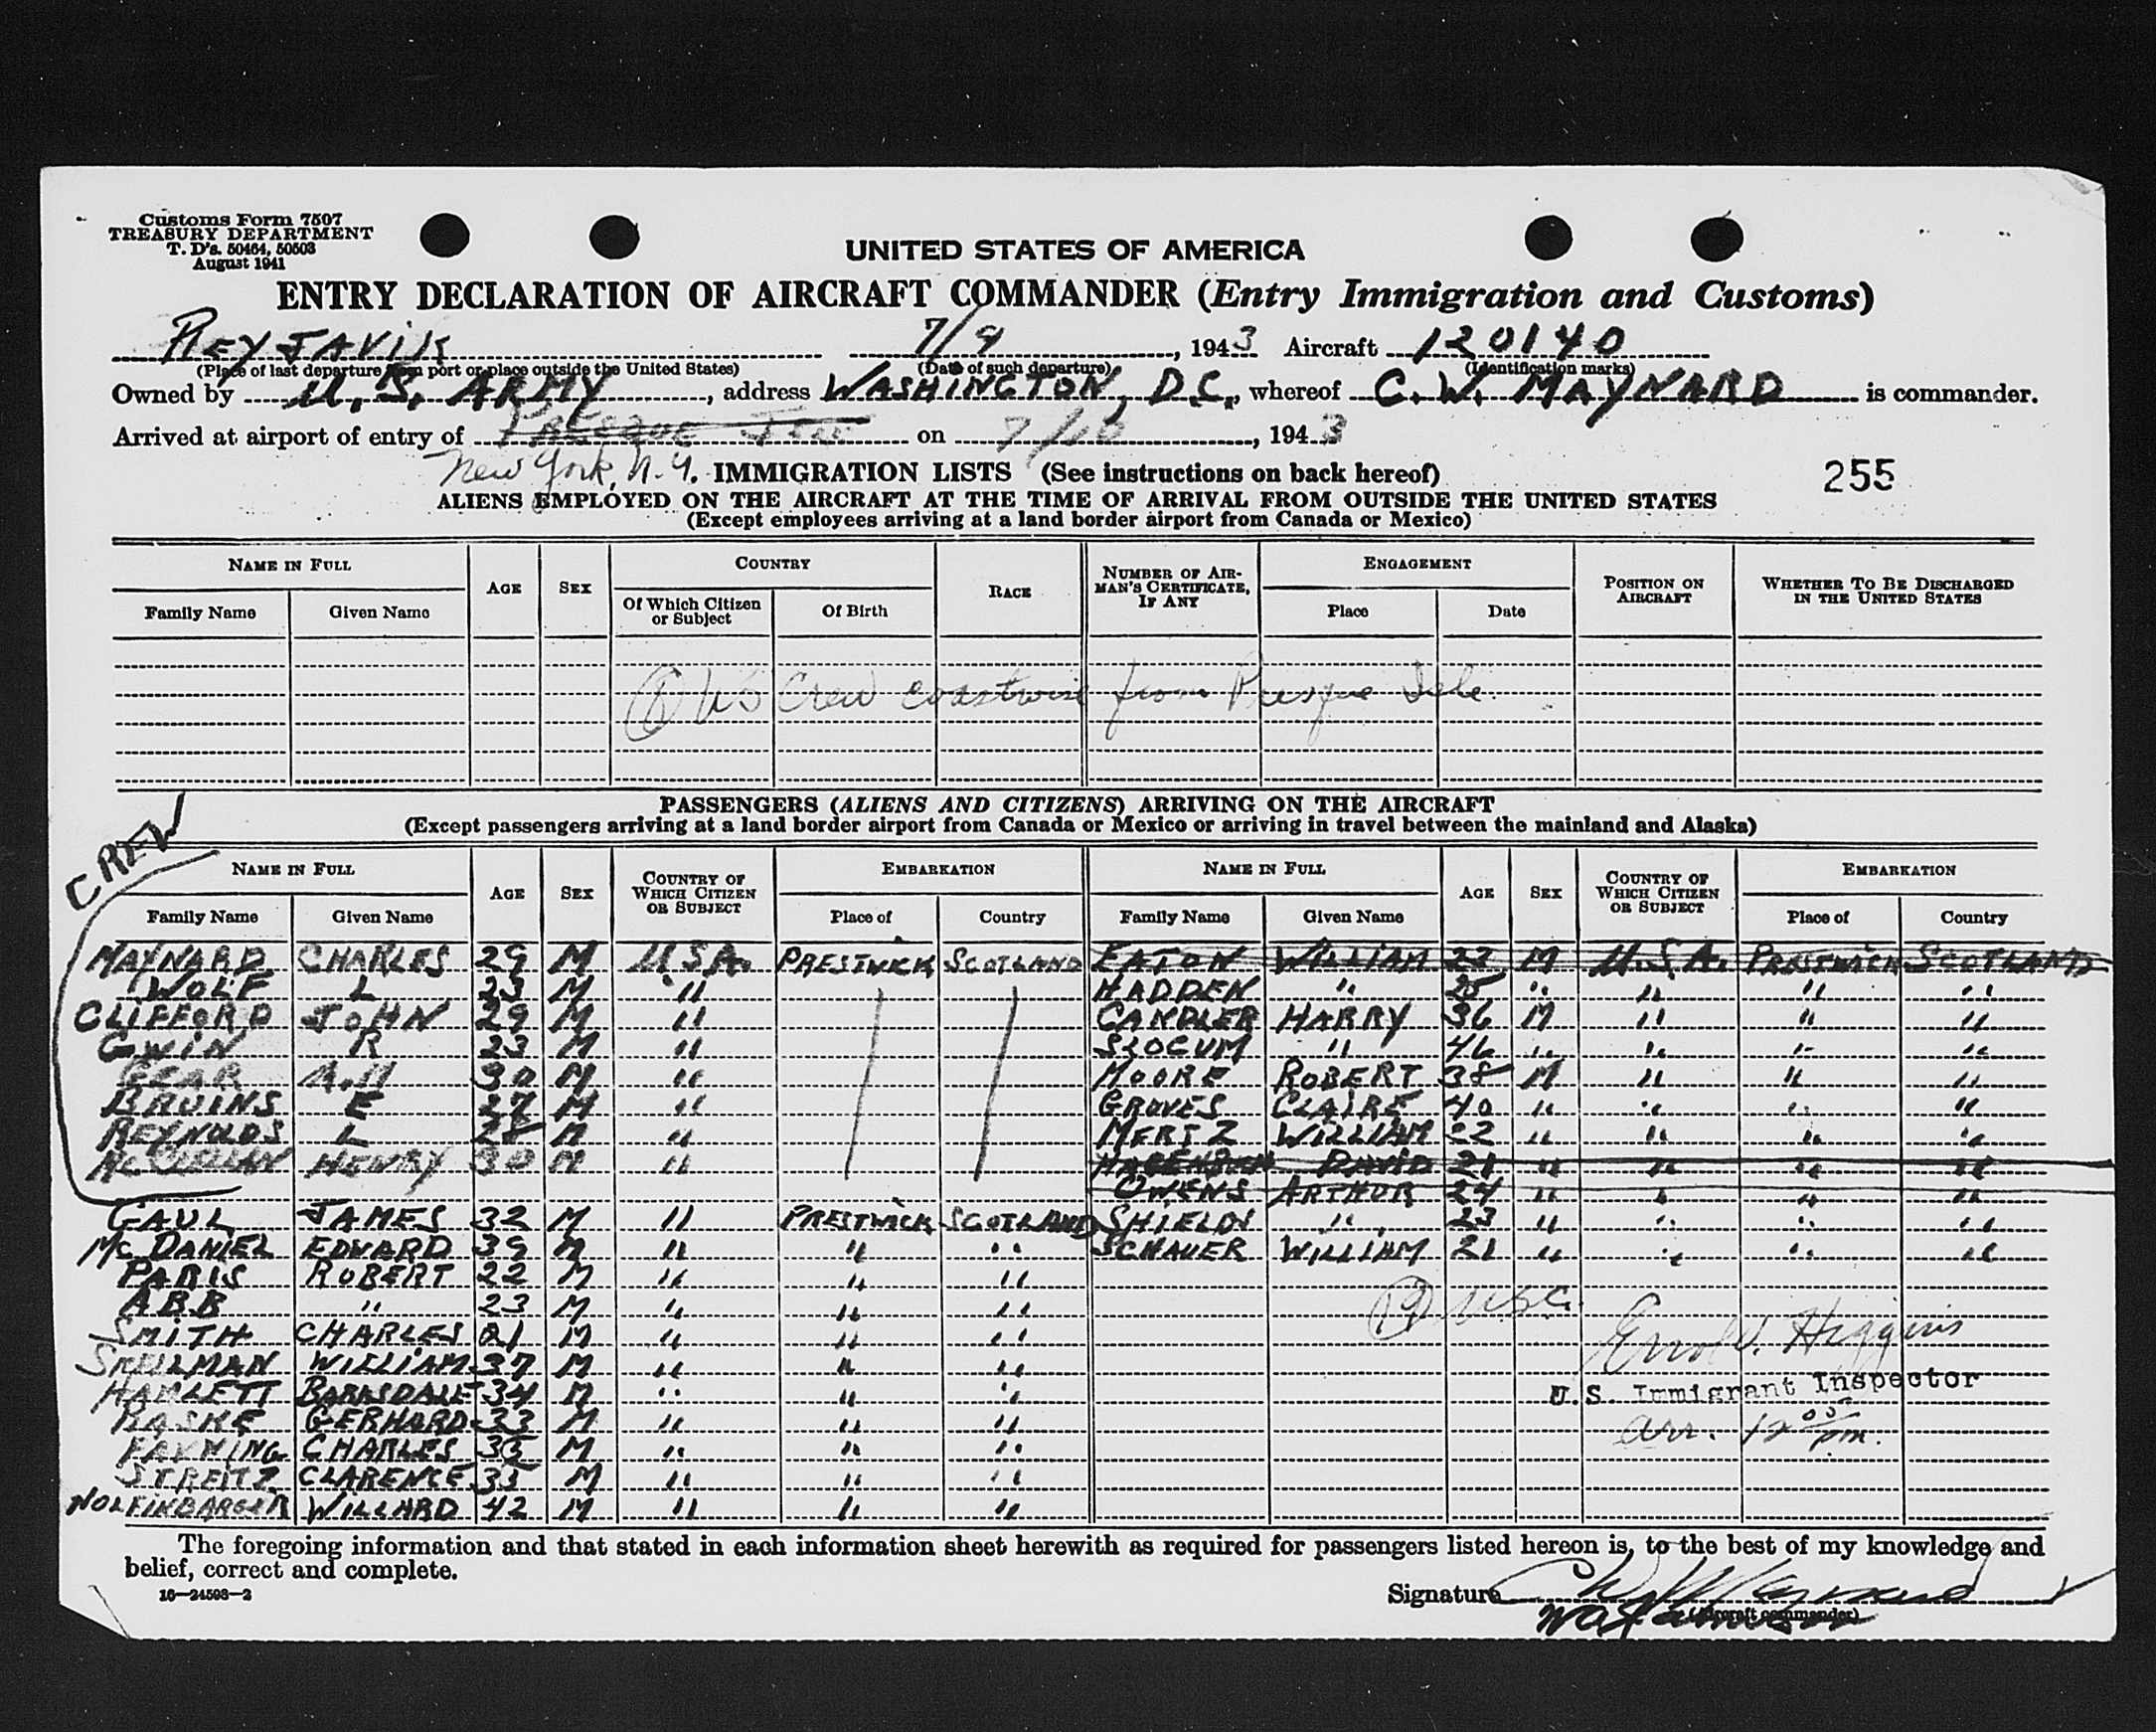 Customs Form 7507
TREASURY DEPARTMENT
T. D's. 50464, 50503
August 1941
UNITED STATES OF AMERICA
ENTRY DECLARATION OF AIRCRAFT COMMANDER (Entry Immigration and Customs)
REYJAVIK 7/9, 1943 Aircraft 120140
(Place of last departure from port or place outside the United States) (Date of such departure) (Identification marks)
Owned by U.S. ARMY, address WASHINGTON, D.C., whereof C.W. MAYNARD is commander.
Arrived at airport of entry of PRESQUE ISLE on 7/10, 1943
New York, N.Y. IMMIGRATION LISTS (See instructions on back hereof)
255
ALIENS EMPLOYED ON THE AIRCRAFT AT THE TIME OF ARRIVAL FROM OUTSIDE THE UNITED STATES
(Except employees arriving at a land border airport from Canada or Mexico)
NAME IN FULL AGE SEX COUNTRY RACE NUMBER OF AIRMAN'S CERTIFICATE, IF ANY ENGAGEMENT POSITION ON AIRCRAFT WHETHER TO BE DISCHARGED IN THE UNITED STATES
Family Name Given Name Of Which Citizen or Subject Of Birth Place Date
(8) US Crew coastwise from Presque Isle
PASSENGERS (ALIENS AND CITIZENS) ARRIVING ON THE AIRCRAFT
(Except passengers arriving at a land border airport from Canada or Mexico or arriving in travel between the mainland and Alaska)
CREW
NAME IN FULL AGE SEX COUNTRY OF WHICH CITIZEN OR SUBJECT EMBARKATION NAME IN FULL AGE SEX COUNTRY OF WHICH CITIZEN OR SUBJECT EMBARKATION
Family Name Given Name Place of Country Family Name Given Name Place of Country
MAYNARD CHARLES 29 M USA. PRESTWICK SCOTLAND EATON WILLIAM 23 M U.S.A. PRESTWICK SCOTLAND
WOLF L 23 M " HADDEN " 25 " " " "
CLIFFORD JOHN 29 M " CANDLER HARRY 36 M " " "
GWIN R 23 M " SLOCUM " 46 " " " "
GEAR A.H 30 M " MOORE ROBERT 38 M " " "
BRUINS E 27 M " GROVES CLAIRE 40 " " " "
REYNOLDS L 28 M " MERTZ WILLIAM 22 " " " "
HENRY 30 M " DAVID 21 " " " "
OWENS ARTHUR 24 " " " "
GAUL JAMES 32 M " PRESTWICK SCOTLAND SHIELDS " 23 " " " "
MCDANIEL EDWARD 39 M " " " SCHAUER WILLIAM 21 " " " "
PARIS ROBERT 22 M " " "
ABB " 23 M " " "
(19) USC.
SMITH CHARLES 21 M " " "
Errol V. Higgins
WILLIAM 37 M " " "
HAMLETT BARKSDALE 34 M " " "
U.S. Immigrant Inspector
RASKE GERHARD 33 M " " "
arr. 12 00 pm.
FANNING CHARLES 35 M " " "
STREITZ CLARENCE 35 M " " "
WOLFINBARGER WILLARD 42 M " " "
The foregoing information and that stated in each information sheet herewith as required for passengers listed hereon is, to the best of my knowledge and
belief, correct and complete.
16—24598-2
Signature C W Maynard
(Aircraft commander)